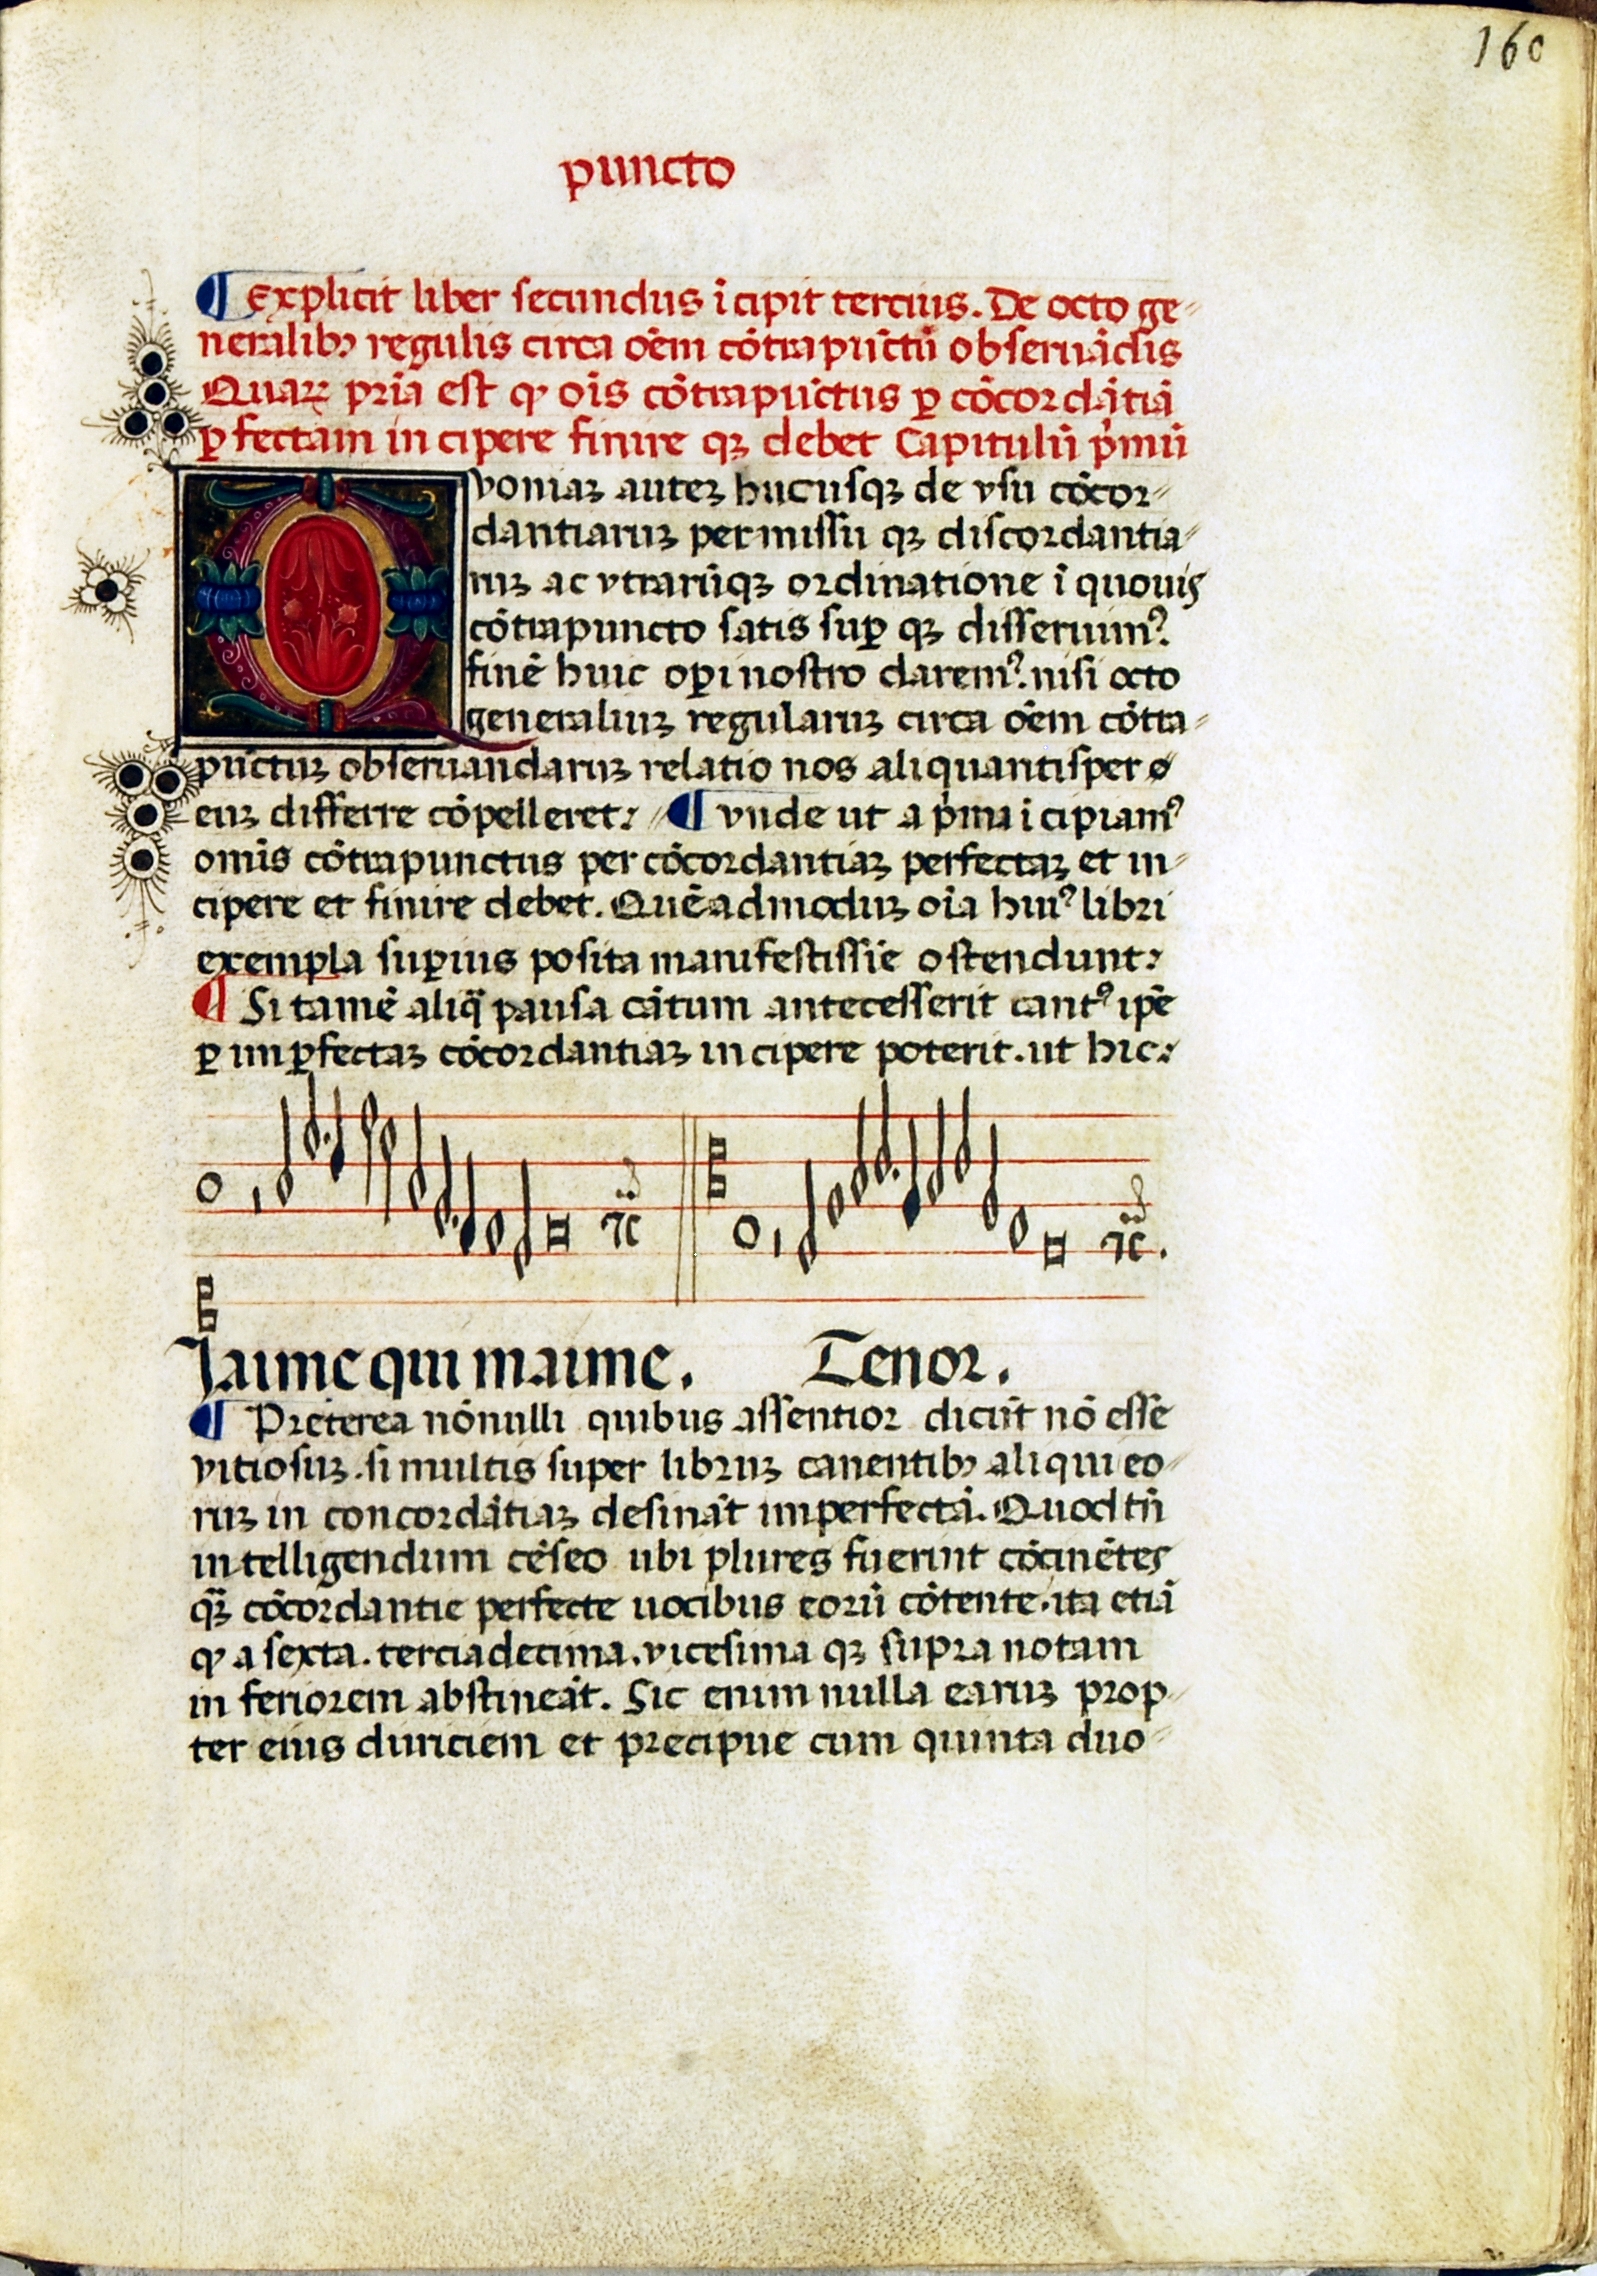 160
puncto
¶ Explicit liber secundus īcipit tercius. De octo ge-
neralibꝰ regulis circa oēm cōtrapūctū obseruādis
Quaꝝ pria est ꝙ oīs cōtrapūctus ꝑ cōcordātiā
ꝑfectam incipere finire qꝫ debet Capitulū pͥmū
Quoniaꝫ auteꝫ hucusqꝫ de vsu cōcor-
dantiaruꝫ permissu qꝫ discordantia-
ruꝫ ac vtrarūqꝫ ordinatione ī quouis
cōtrapuncto satis suꝑ qꝫ disseruimꝰ.
finē huic oꝑi nostro daremꝰ. nisi octo
generaliuꝫ regularuꝫ circa oēm cōtra-
pūctuꝫ obseruandaruꝫ relatio nos aliquantisper
euꝫ differre cōpelleret: ¶ vnde ut a pͥma icipiamꝰ
omīs cōtrapunctus per cōcordantiaꝫ perfectaꝫ et in-
cipere et finire debet. Quēadmoduꝫ oīa huiꝰ libri
exempla suꝑius posita manifestissīe ostendunt:
¶ Si tamē aliqͣ pausa cātum antecesserit cantꝰ ipē
ꝑ imꝑfectaꝫ cōcordantiaꝫ incipere poterit. ut hic:
⁊c ⁊c.
Jaime qui maime. Tenor.
¶ Preterea nōnulli quibus assentior dicūt nō esse
vitiosuꝫ. si multis super libruꝫ canentibꝰ aliqui eo-
ruꝫ in concordātiaꝫ desināt imperfectā. Quod tn̄
intelligendum cēseo ubi plures fuerint cōcinētes
qͣꝫ cōcordantie perfecte uocibus eorū cōtente. ita etiā
ꝙ a sexta. terciadecima. vicesima qꝫ supra notam
inferiorem abstineāt. Sic enim nulla earuꝫ prop-
ter eius duriciem et precipue cum quinta duo-